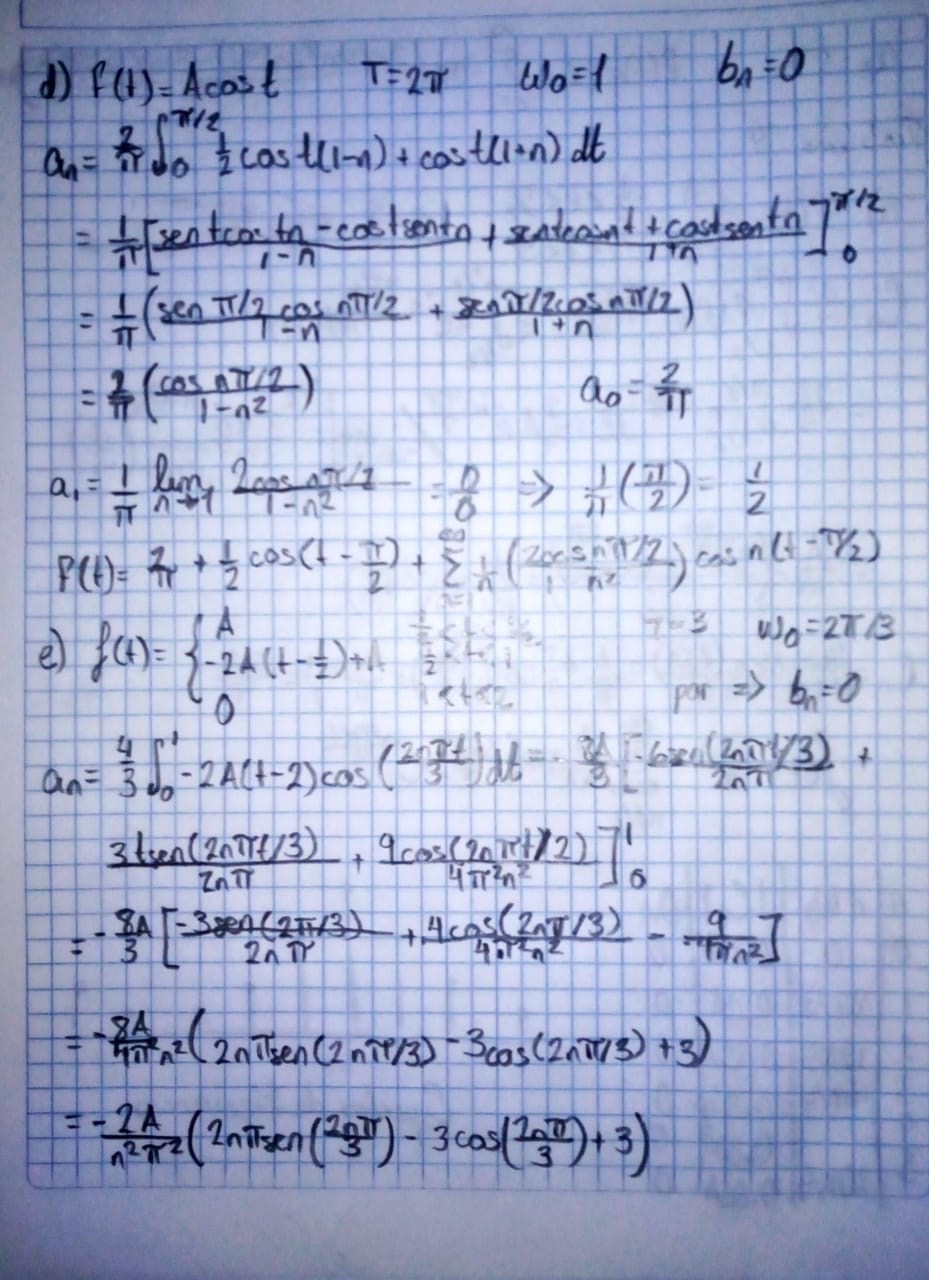 d) f(t)=Acost T=2π ω₀=1 bₙ=0
aₙ= 2/π ∫₀^π/2 1/2 cost(1-n) + cost(1+n) dt
= 1/π [ (sen t cos tn - cos t sen tn)/(1-n) + (sen t cos n t + cos t sen tn)/(1+n) ]₀^π/2
= 1/π ( (sen π/2 cos nπ/2)/(1-n) + (sen π/2 cos nπ/2)/(1+n) )
= 2/π ( (cos nπ/2)/(1-n²) ) a₀= 2/π
a₁= 1/π lim n→1 (2cos nπ/2)/(1-n²) = 0/0 ⇒ 1/π (π/2) = 1/2
f(t)= 2/π + 1/2 cos(t - π/2) + Σ^∞ (2cos nπ/2) cos n(t - π/2)
e) f(t)= { A T=3 ω₀=2π/3
-2A(t-1/2)+A
0 1<t<2 par ⇒ bₙ=0
aₙ= 4/3 ∫₀¹ -2A(t-2)cos(2nπt/3)dt = - 8A/3 [ -6sen(2nπt/3)/2nπ +
3tsen(2nπt/3)/2nπ + 9cos(2nπt/2)/4π²n² ]₀¹
= -8A/3 [ -3sen(2π/3)/2nπ + 4cos(2nπ/3)/4π²n² - 9 ]
= -8A/4π²n² ( 2nπsen(2nπ/3) - 3cos(2nπ/3) + 3)
= -2A/n²π² ( 2nπsen(2nπ/3) - 3cos(2nπ/3) + 3)